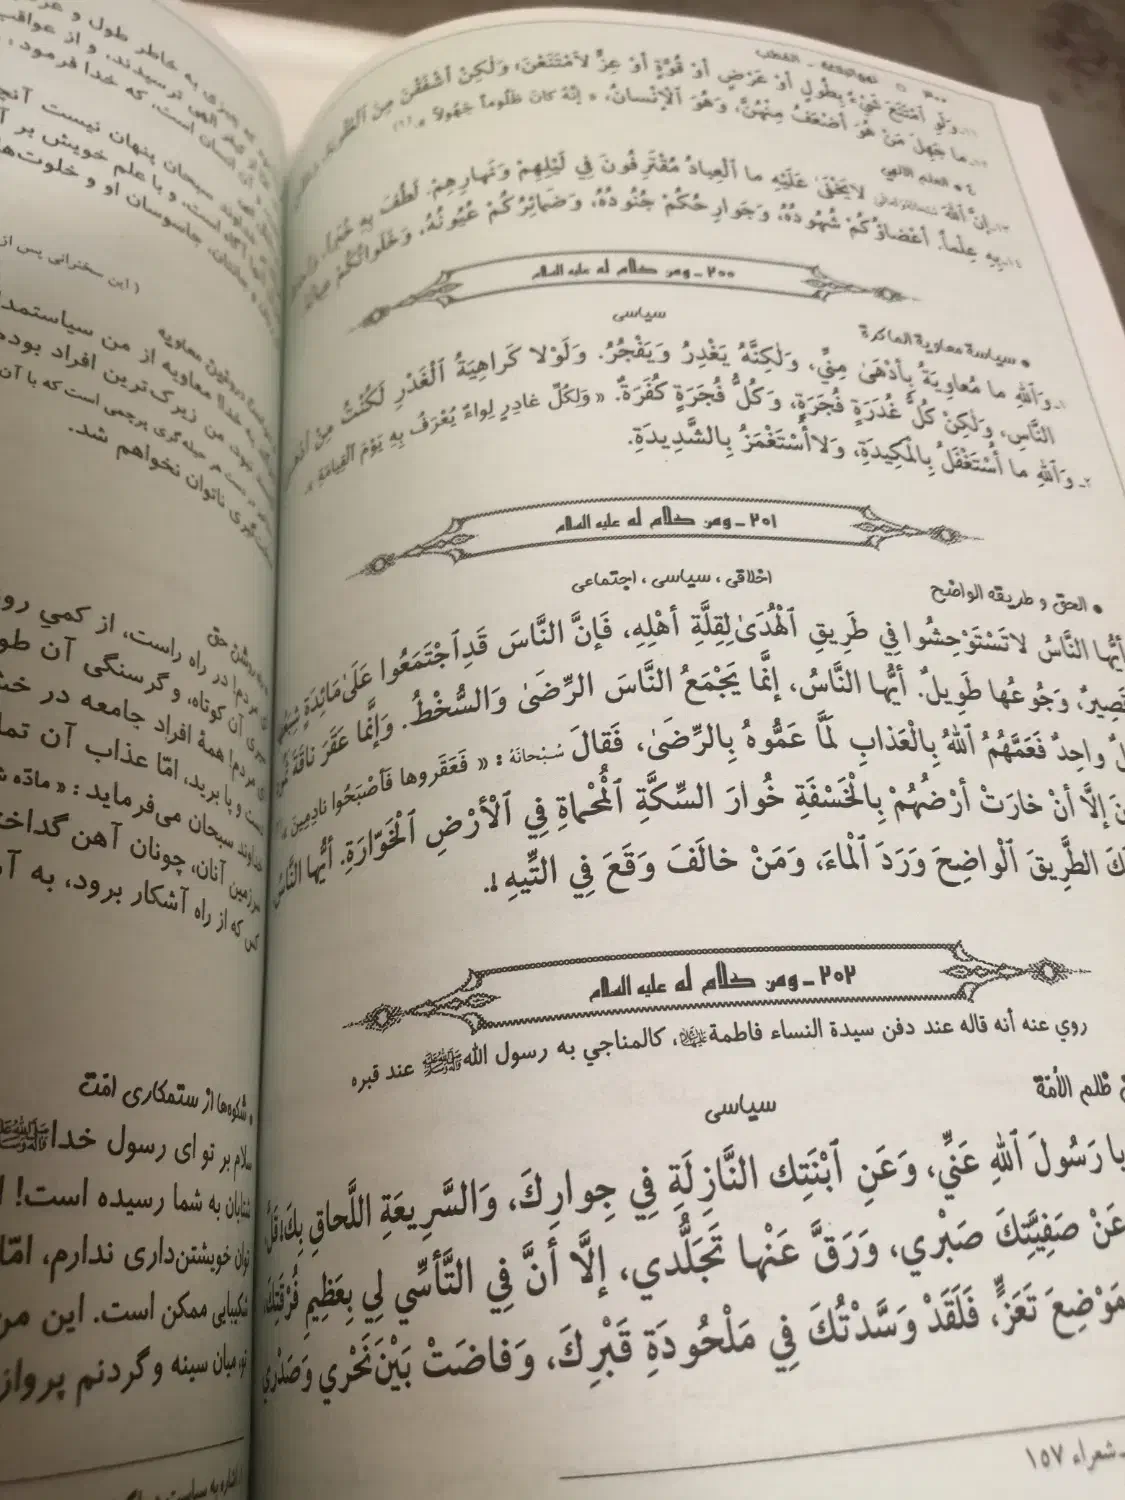 ٣٠٠ نهج البلاغة - الخطب
١١ـ وَلَوِ ٱمْتَنَعَ شَيْءٌ بِطُولٍ أَوْ عَرْضٍ أَوْ قُوَّةٍ أَوْ عِزٍّ لَامْتَنَعْنَ، وَلٰكِنْ أَشْفَقْنَ مِنَ
١٢ـ ما جَهِلَ مَنْ هُوَ أَضْعَفُ مِنْهُنَّ، وَهُوَ ٱلْإِنْسانُ، « إِنَّهُ كانَ ظَلُوماً جَهُولاً ».(١)
٤ • العلم الالهي
١٣ـ إِنَّ ٱللهَ لايَخْفىٰ عَلَيْهِ ما ٱلْعِبادُ مُقْتَرِفُونَ فِي لَيْلِهِمْ وَنَهارِهِمْ. لَطُفَ بِهِ خُبْراً،
١٤ـ بِهِ عِلْماً. أَعْضاؤُكُمْ شُهُودُهُ، وَجَوارِحُكُمْ جُنُودُهُ، وَضَمائِرُكُمْ عُيُونُهُ، وَخَلَواتُكُمْ
٢٠٠ ـ ومن كلام له عليه السلام
سیاسی
• سياسة معاوية الماكرة
١ـ وَٱللهِ ما مُعاوِيَةُ بِأَدْهىٰ مِنِّي، وَلٰكِنَّهُ يَغْدِرُ وَيَفْجُرُ. وَلَوْلا كَراهِيَةُ ٱلْغَدْرِ لَكُنْتُ مِنْ
النَّاسِ، وَلٰكِنْ كُلُّ غُدَرَةٍ فُجَرَةٍ، وَكُلُّ فُجَرَةٍ كُفَرَةٌ. « وَلِكُلِّ غادِرٍ لِواءٌ يُعْرَفُ بِهِ يَوْمَ القِيامَةِ ».
٢ـ وَٱللهِ ما أُسْتَغْفَلُ بِالْمَكِيدَةِ، وَلا أُسْتَغْمَزُ بِالشَّدِيدَةِ.
٢٠١ ـ ومن كلام له عليه السلام
اخلاقی ، سیاسی ، اجتماعی
• الحق و طريقه الواضح
أَيُّها النَّاسُ لاتَسْتَوْحِشُوا فِي طَرِيقِ ٱلْهُدَىٰ لِقِلَّةِ أَهْلِهِ، فَإِنَّ النَّاسَ قَدِ ٱجْتَمَعُوا عَلَىٰ مَائِدَةٍ
قَصِيرٌ، وَجُوعُها طَوِيلٌ. أَيُّها النَّاسُ، إِنَّما يَجْمَعُ النَّاسَ الرِّضَىٰ وَالسُّخْطُ. وَإِنَّما عَقَرَ ناقَةَ
واحِدٌ فَعَمَّهُمُ ٱللهُ بِالْعَذابِ لَمَّا عَمُّوهُ بِالرِّضَىٰ، فَقالَ سُبْحانَهُ : « فَعَقَروها فَأَصْبَحُوا نادِمِينَ »
إِلَّا أَنْ خارَتْ أَرْضُهُمْ بِالْخَسْفَةِ خُوارَ السِّكَّةِ ٱلْمُحْماةِ فِي ٱلْأَرْضِ ٱلْخَوَّارَةِ. أَيُّها النَّاسُ
الطَّرِيقَ ٱلْواضِحَ وَرَدَ ٱلْماءَ، وَمَنْ خالَفَ وَقَعَ فِي التِّيهِ !.
٢٠٢ ـ ومن كلام له عليه السلام
روي عنه أنه قاله عند دفن سيدة النساء فاطمة، كالمناجي به رسول اللهﷺ عند قبره
ظلم الأمّة
سیاسی
يا رَسُولَ ٱللهِ عَنِّي، وَعَنِ ٱبْنَتِكَ النَّازِلَةِ فِي جِوارِكَ، وَالسَّرِيعَةِ اللَّحاقِ بِكَ! قَلَّ
عَنْ صَفِيَّتِكَ صَبْري، وَرَقَّ عَنْها تَجَلُّدي، إِلَّا أَنَّ فِي التَّأَسِّي لي بِعَظِيمِ فُرْقَتِكَ،
مَوْضِعَ تَعَزٍّ، فَلَقَدْ وَسَّدْتُكَ فِي مَلْحُودَةِ قَبْرِكَ، وَفاضَتْ بَيْنَ نَحْري وَصَدْري
شعراء ١٥٧
به خاطر طول و
الهی ترسیدند. و از عواقب
انسان است، که خدا فرمود :
خداوند سبحان پنهان نیست
آگاه است، و با علم خویش بر
جاسوسان او و
( این سخنرانی پس از
دروغین معاویه
به خدا! معاویه از من
نبود، من زیرک‌ترین افراد
در دست هر حیله‌گری پرچمی است که با آن
ناتوان نخواهم شد.
روشن حق
مردم! در راه راست، از کمی
آن کوتاه، و گرسنگی آن
مردم! همهٔ افراد جامعه در
و پا برید، امّا عذاب آن
خداوند سبحان می‌فرماید : « مادّه
سرزمین آنان، چونان آهن
کس که از راه آشکار برود، به
• شکوه‌ها از ستمکاری امّت
سلام بر تو ای رسول خداﷺ
شتابان به شما رسیده است!
توان خویشتن‌داری ندارم، امّا
شکیبایی ممکن است. این
میان سینه و گردنم پرواز
اشاره به